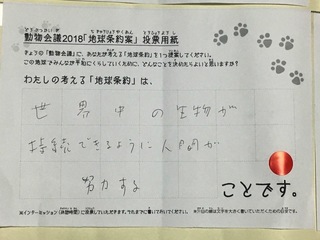 動物会議2018「地球条約案」投票用紙
きょうの「動物会議」に、あなたが考える「地球条約」を1つ提案してください。
この地球でみんなが平和にくらしていくために、どんなことを決めたらよいと思いますか?
わたしの考える「地球条約」は、
世界中の生物が
持続できるように人間が
努力する
ことです。
※インターミッション(休憩時間)に投票していただきます。今たたずに書いておいてください。